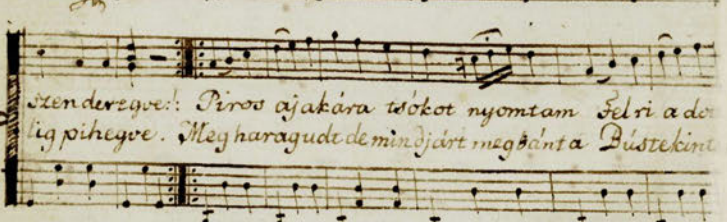 szenderegve:|: Piros ajakára tsókot nyomtam Felri a do
lig pihegve. Megharagudt de mindjárt megbánta Bústekint